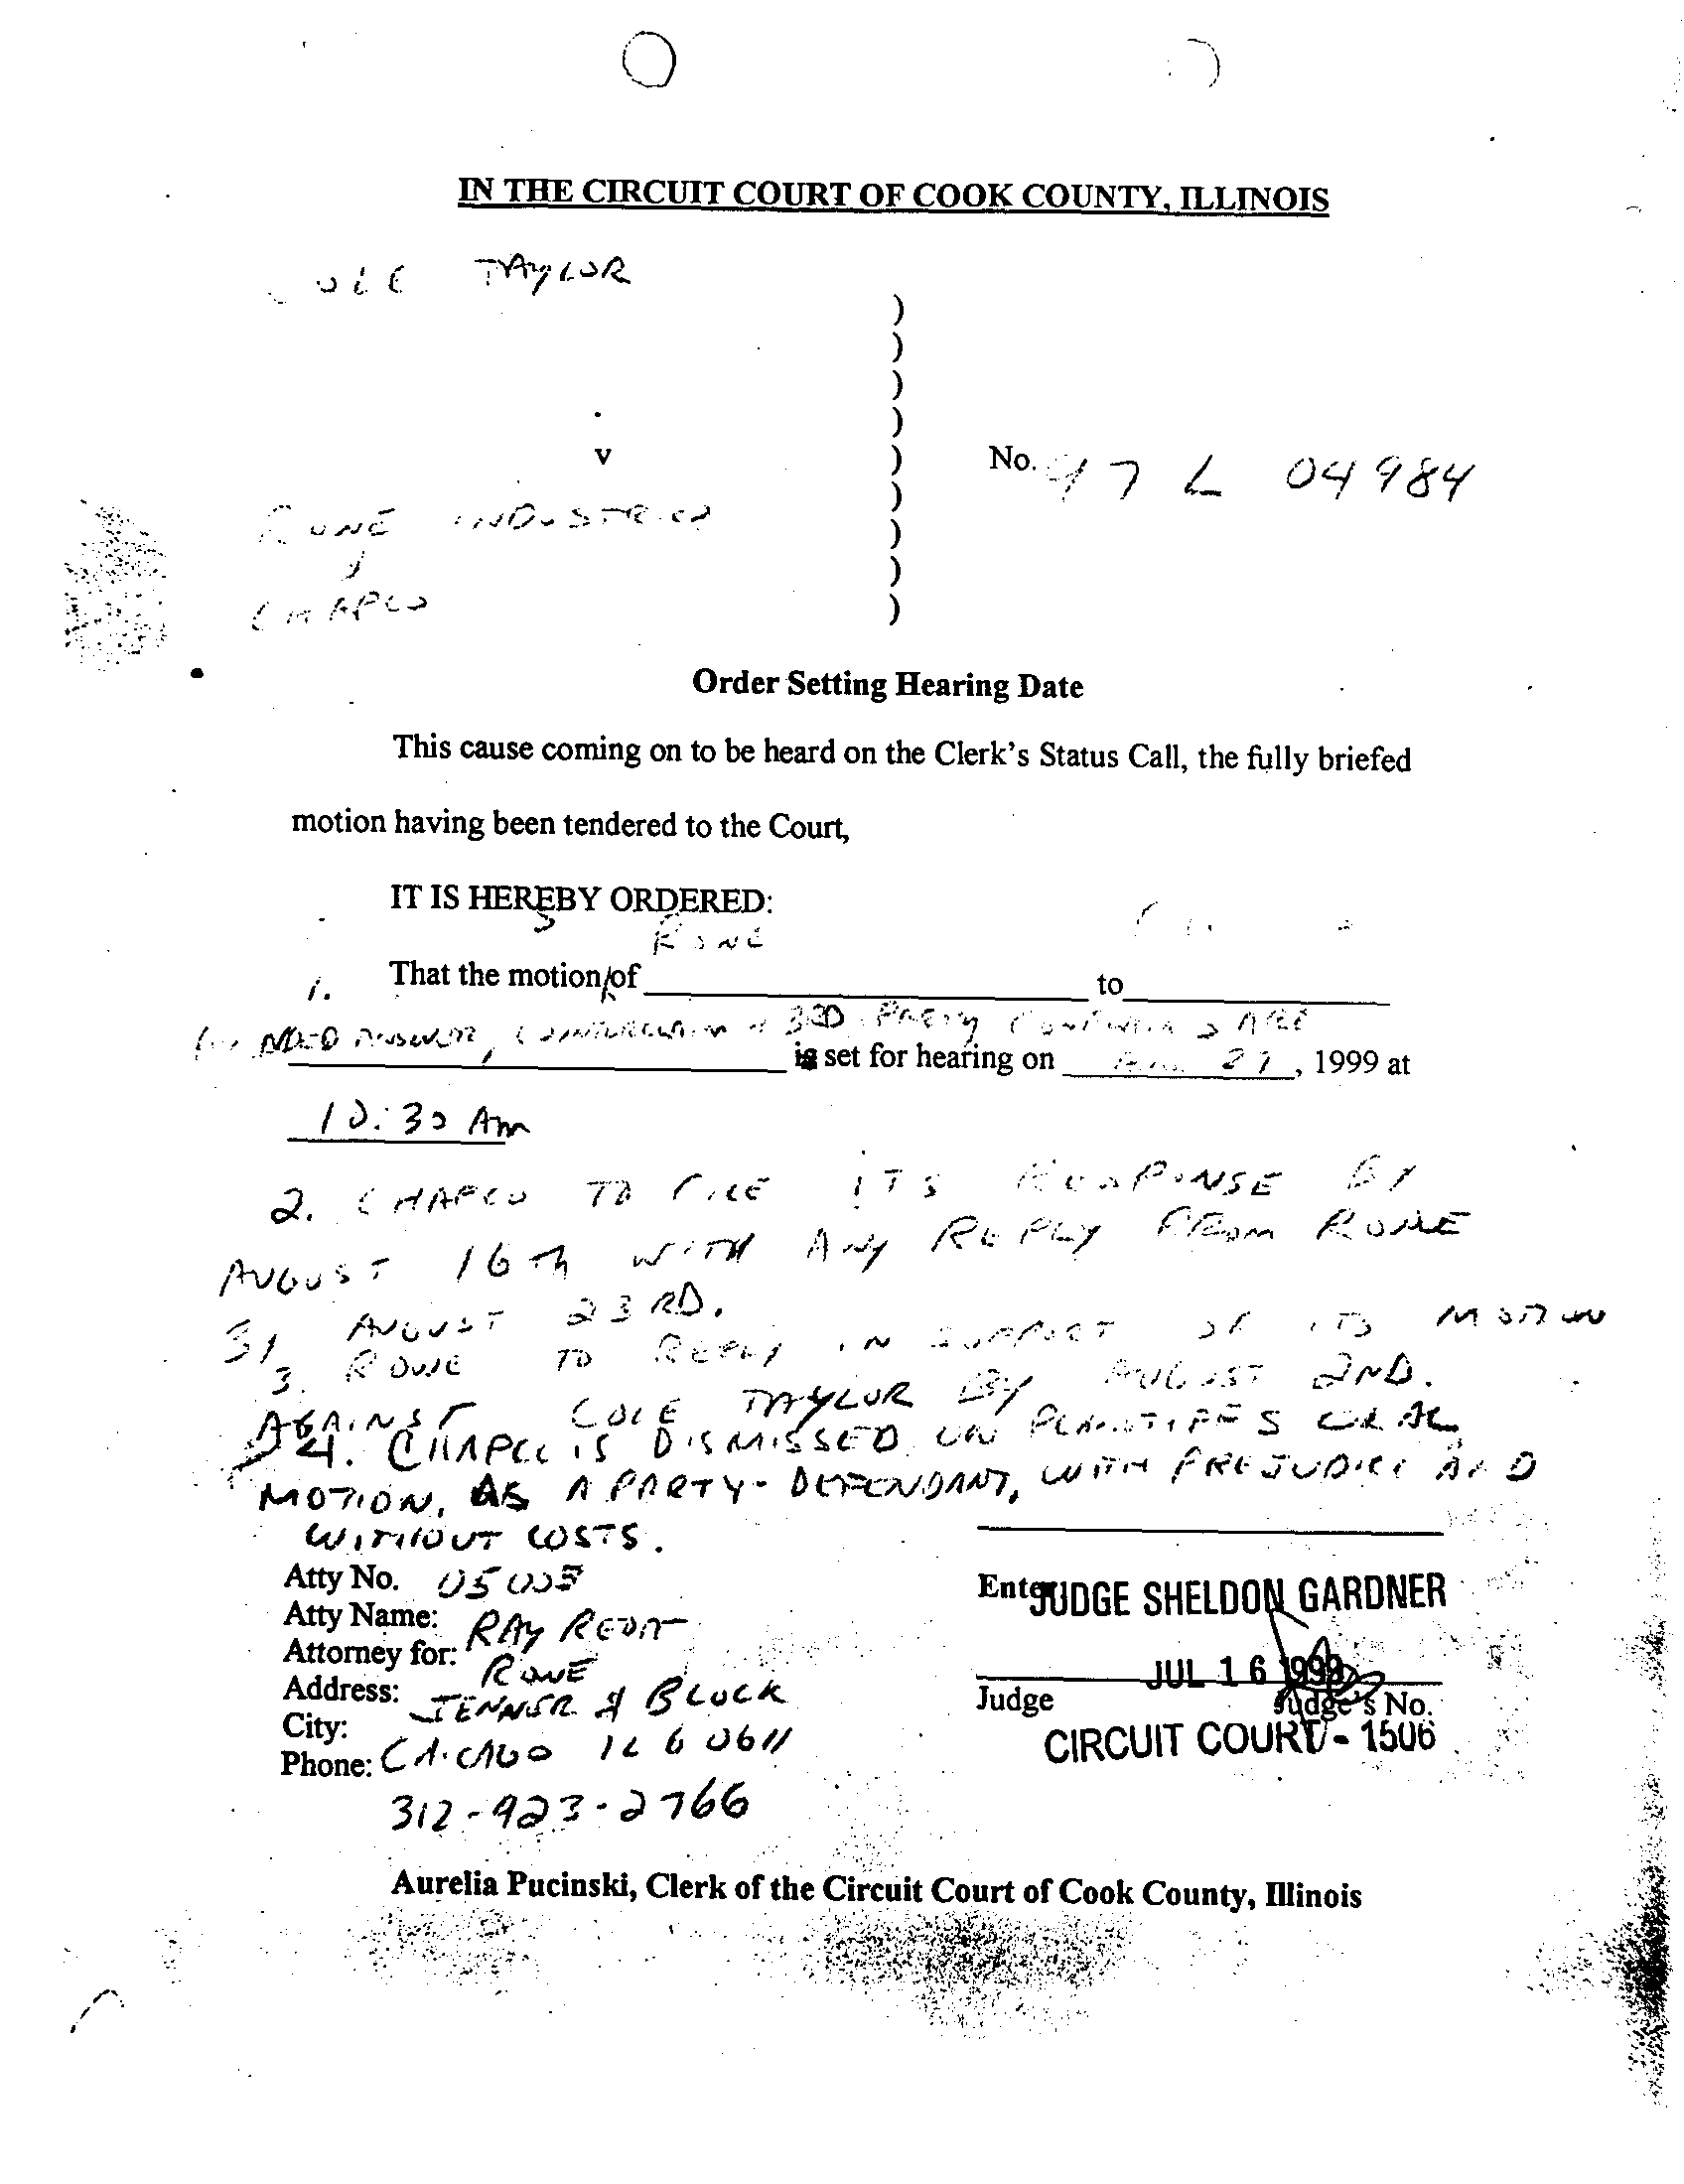 IN THE CIRCUIT COURT OF COOK COUNTY, ILLINOIS
TAYLOR
)
)
)
)
v )
No. 97 L 04984
)
ROWE INDUSTRIES )
, )
CHAPCO )
Order Setting Hearing Date
This cause coming on to be heard on the Clerk's Status Call, the fully briefed
motion having been tendered to the Court,
IT IS HEREBY ORDERED:
S ROWE
1. That the motion of to
ANSWER, COUNTERCLAIM & 3RD PARTY ARE
is set for hearing on 27, 1999 at
10:30 AM
2. CHAPCO TO FILE ITS RESPONSE BY
AUGUST 16TH WITH ANY REPLY FROM ROWE
AUGUST 23RD.
3. ROWE TO REPLY IN SUPPORT OF ITS MOTION
AGAINST COLE TAYLOR BY AUGUST 2ND.
4. CHAPCO IS DISMISSED, ON PLAINTIFFS ORAL
MOTION, AS A PARTY-DEFENDANT, WITH PREJUDICE AND
WITHOUT COSTS.
Atty No.
Atty Name: RAY
Attorney for: ROWE
Address: JENNER & BLOCK
City: CHICAGO IL 60611
Phone: 312-923-2766
Enter
JUDGE SHELDON GARDNER
JUL 16 1999
Judge Judge's No.
CIRCUIT COURT - 1506
Aurelia Pucinski, Clerk of the Circuit Court of Cook County, Illinois